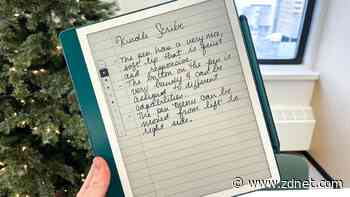 Kindle Scribe
The pen has a very nice,
soft tip that is quiet
and responsive.
The button on the pen is
very handy & can be
assigned to different
capabilities.
The pen menu can be
moved from left to
right side.
www.zdnet.com